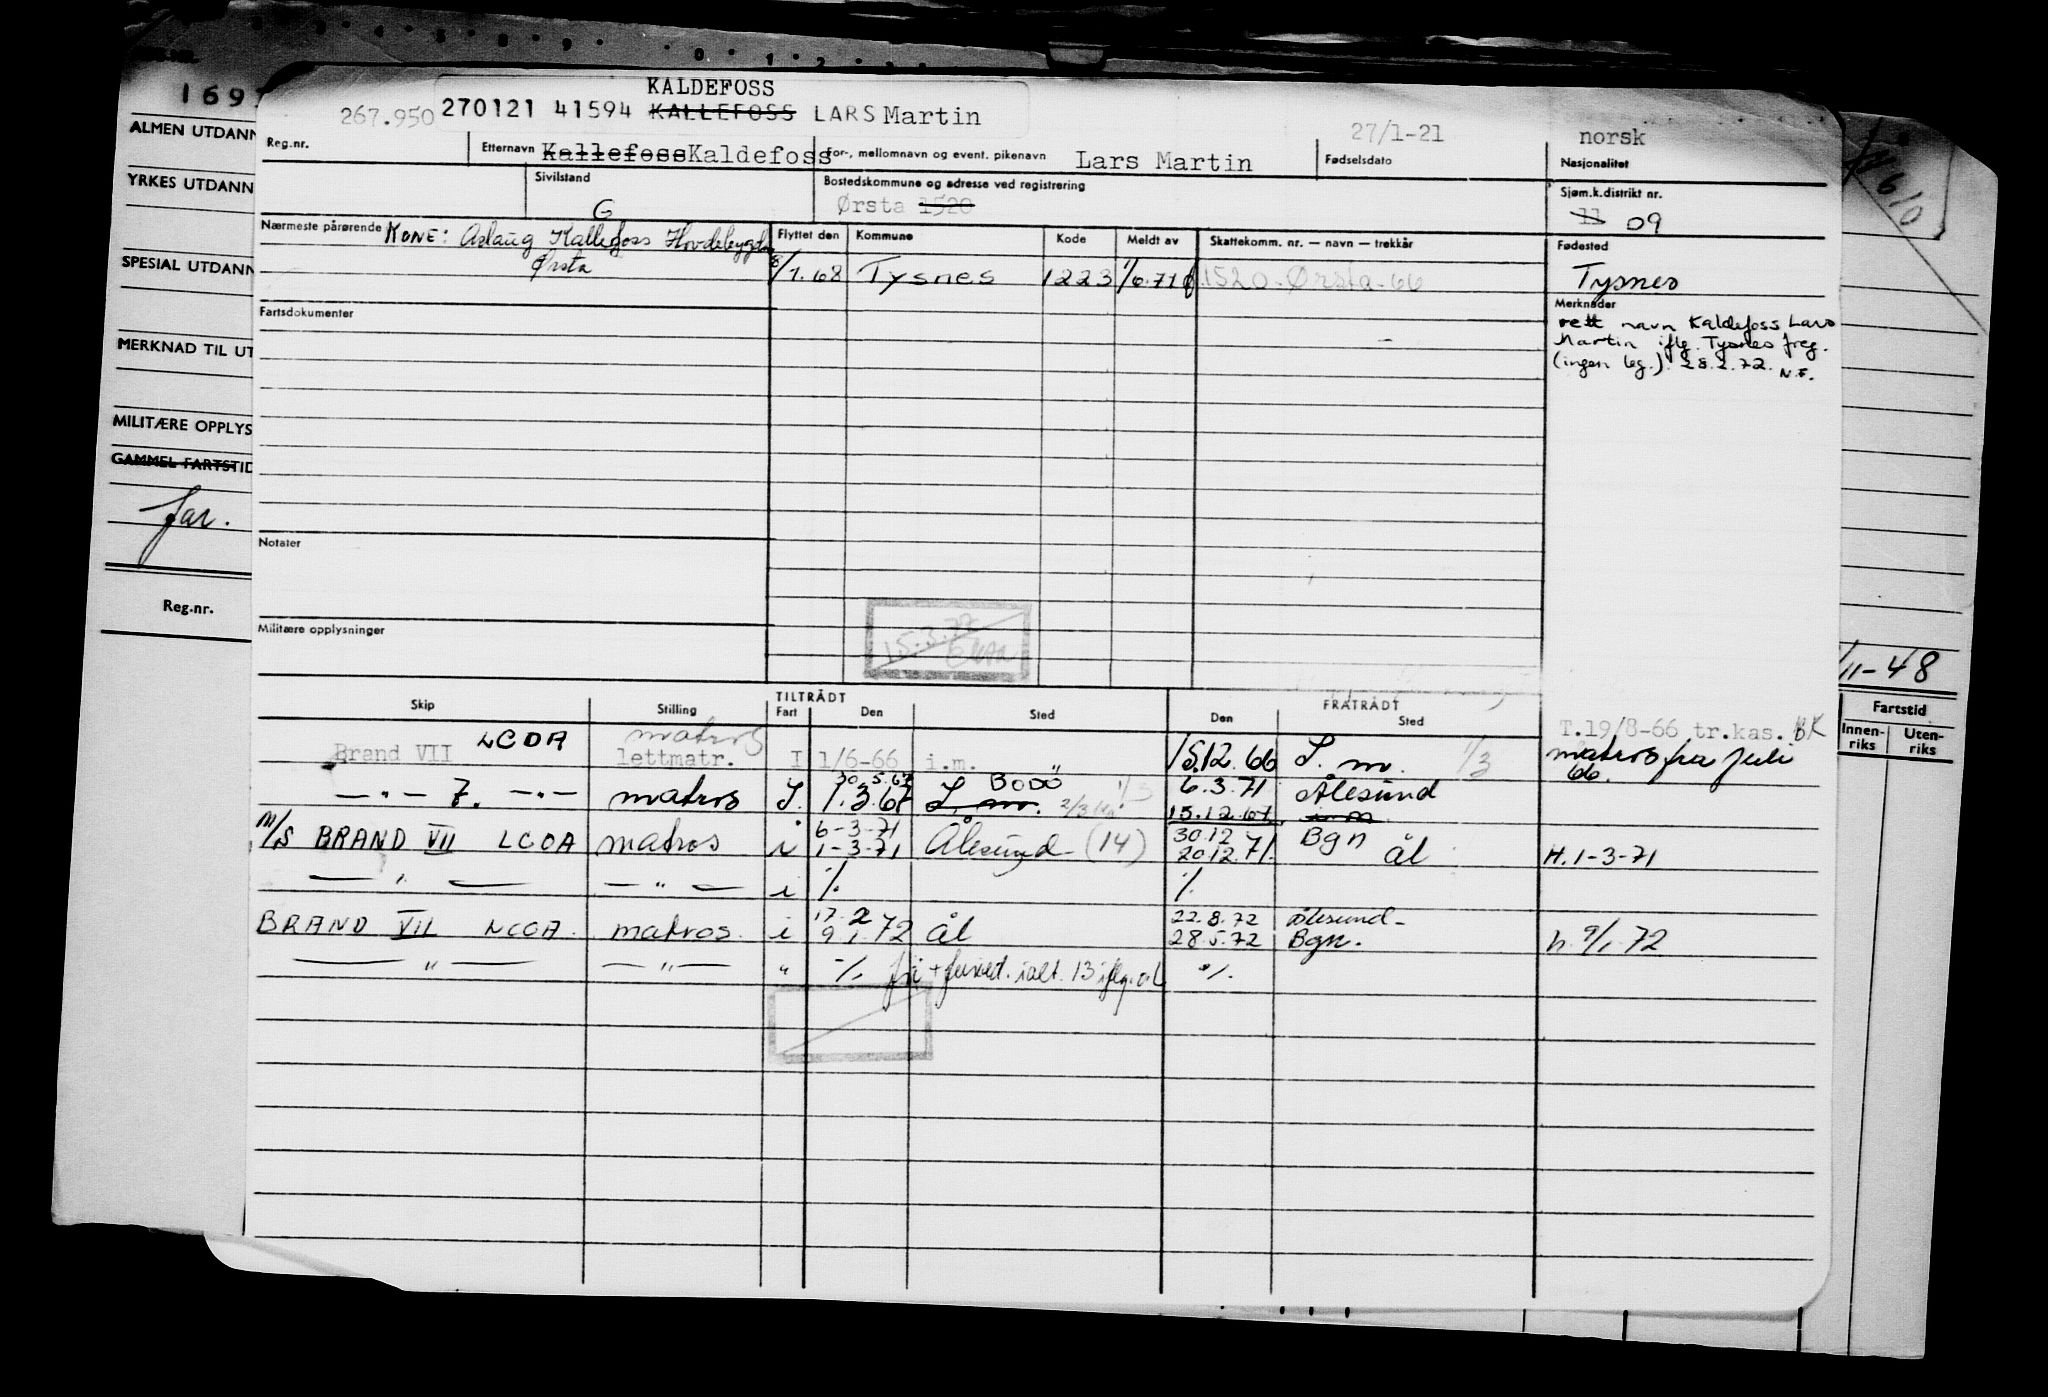 169
ALMEN UTDANN
YRKES UTDANN
SPESIAL UTDANN
MERKNAD TIL UT
MILITÆRE OPPLYS
GAMMEL FARTSTID
far.
Reg.nr.
KALDEFOSS
267.950 270121 41594 KALLEFOSS LARS Martin
27/1-21 norsk
Reg.nr. Etternavn Kallefoss Kaldefoss For-, mellomnavn og event. pikenavn Lars Martin Fødselsdato Nasjonalitet
Sivilstand G
Bostedskommune og adresse ved registrering
Ørsta 1520
Sjøm.k.distrikt nr.
11 09
Nærmeste pårørende KONE: Aslaug Kallefoss Hovdebygda
Ørsta
Flyttet den Kommune Kode Meldt av Skattekomm. nr. — navn — trekkår
8/1.68 Tysnes 1223 1/6.71 1520-Ørsta-66
Fødested
Tysnes
Merknader
rett navn Kaldefoss Lars
Martin iflg. Tysnes freg.
(ingen leg.). 28.2.72. N.F.
Fartsdokumenter
Notater
15.3.72
Militære opplysninger
TILTRÅDT FRATRÅDT
Skip Stilling Fart Den Sted Den Sted
T.19/8-66 tr.kas. BK
LCOA matros
Brand VII lettmatr. I 1/6-66 i.m. 15.12.66 I. m. 1/3 matros fra juli
66.
30.5.67 BODÖ 6.3.71 Ålesund
—"— 7. —"— matros I. 1.3.67 I. m. 2/3 15.12.67 i m
6-3-71 30.12 Bgn
M/S BRAND VII LCOA matros i 1-3-71 Ålesund (14) 20.12.71. ål H.1-3-71
— " — — " — i ·/. ·/.
17.2 22.8.72 Ålesund-
BRAND VII LCOA matros. i 9/1.72 ål 28.5.72 Bgn. h. 9/1.72
— " — — " — " ·/. fri + ialt. 13 iflg. ål ·/.
/11-48
Fartstid
Innen-
riks
Uten-
riks